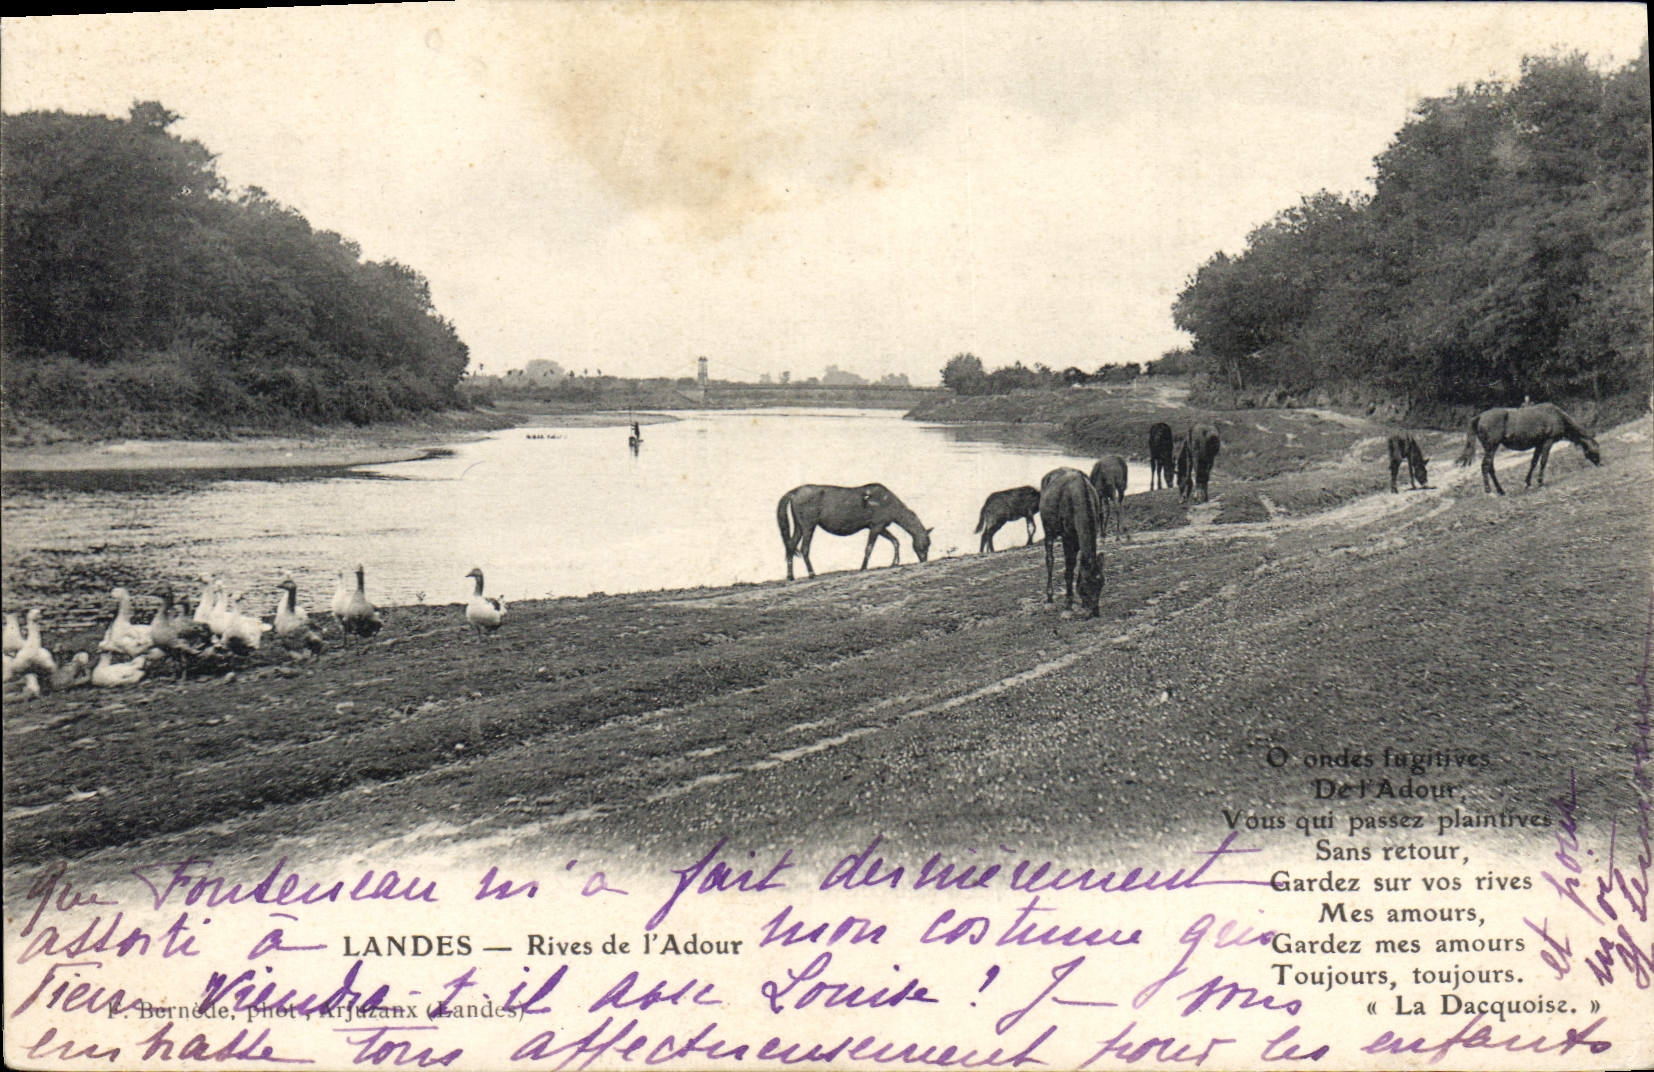 O ondes fugitives
De l'Adour,
Vous qui passez plaintives
Sans retour,
Gardez sur vos rives
Mes amours,
Gardez mes amours
Toujours, toujours.
« La Dacquoise. »
LANDES — Rives de l'Adour
F. Bernède, phot., Arjuzanx (Landes)
que Fonteneau m'a fait dernièrement
assorti à mon costume gris
Tien Viendra-t-il avec Louise ! Je vous
embrasse tous affectueusement pour les enfants
et pour